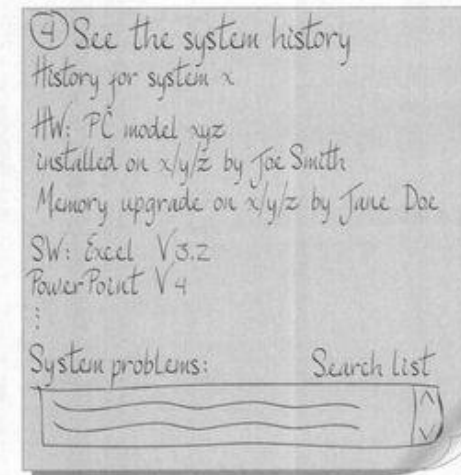 ④ See the system history
History for system x
HW: PC model xyz
installed on x/y/z by Joe Smith
Memory upgrade on x/y/z by Jane Doe
SW: Excel V3.2
PowerPoint V4
⋮
System problems: Search list